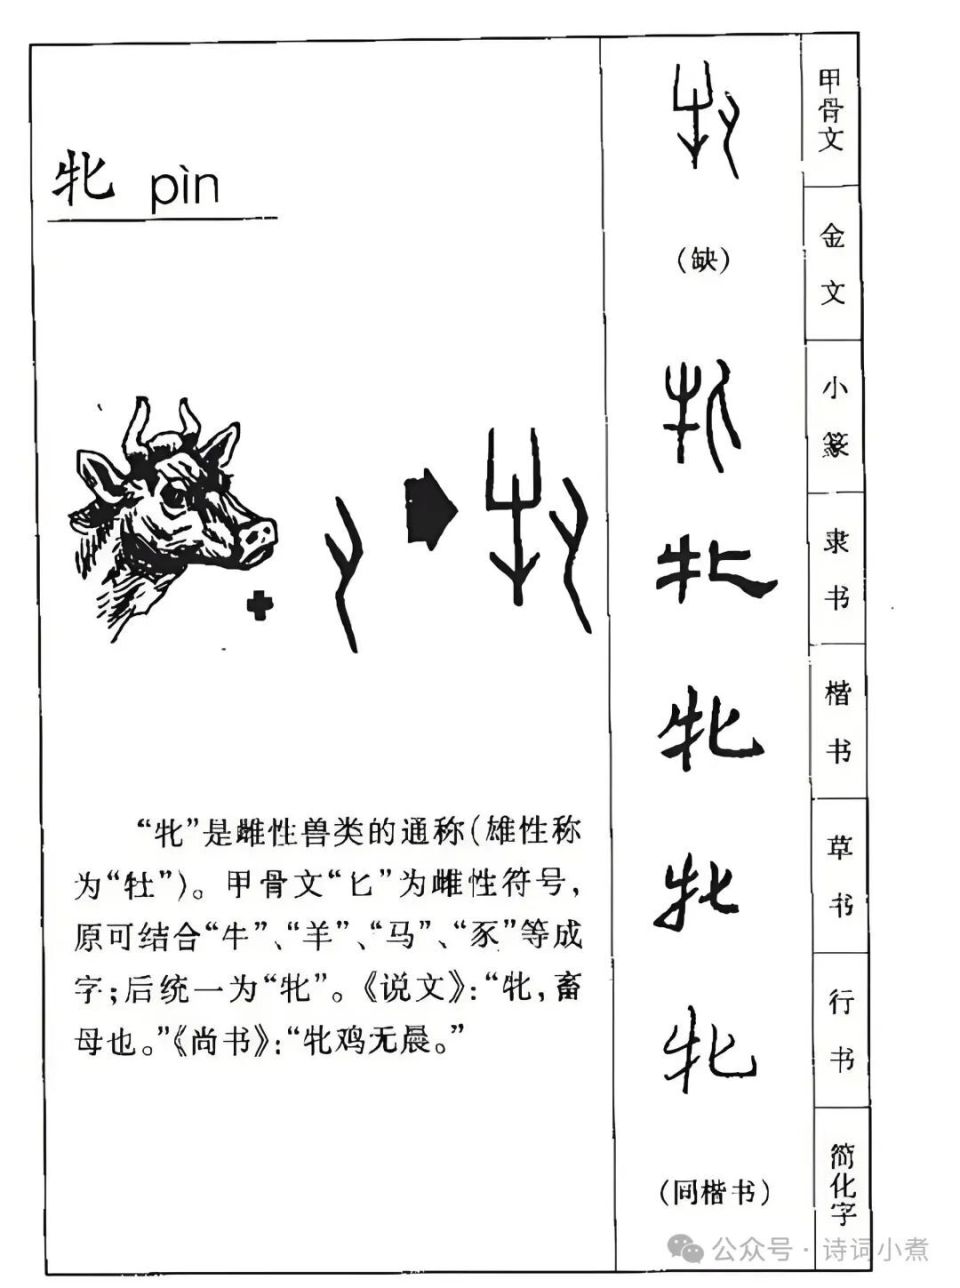 牝 pìn
“牝”是雌性兽类的通称(雄性称
为“牡”)。甲骨文“匕”为雌性符号,
原可结合“牛”、“羊”、“马”、“豕”等成
字;后统一为“牝”。《说文》:“牝,畜
母也。”《尚书》:“牝鸡无晨。”
甲骨文
(缺)
金文
小篆
牝
隶书
牝
楷书
牝
草书
牝
行书
(同楷书)
简化字
公众号·诗词小煮